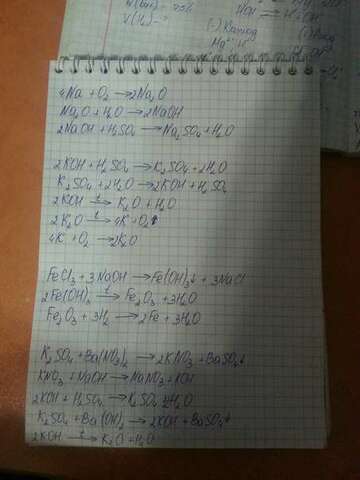 V(H₂) = ?
(-) Катод
4Na + O₂ → 2Na₂O
Na₂O + H₂O → 2NaOH
2NaOH + H₂SO₄ → Na₂SO₄ + H₂O
2KOH + H₂SO₄ → K₂SO₄ + 2H₂O
K₂SO₄ + 2H₂O → 2KOH + H₂SO₄
2KOH →t K₂O + H₂O
2K₂O →t 4K + O₂↑
4K + O₂ → 2K₂O
FeCl₃ + 3NaOH → Fe(OH)₃↓ + 3NaCl
2Fe(OH)₃ →t Fe₂O₃ + 3H₂O
Fe₂O₃ + 3H₂ → 2Fe + 3H₂O
K₂SO₄ + Ba(NO₃)₂ → 2KNO₃ + BaSO₄↓
KNO₃ + NaOH → NaNO₃ + KOH
2KOH + H₂SO₄ → K₂SO₄ + 2H₂O
K₂SO₄ + Ba(OH)₂ → 2KOH + BaSO₄↓
2KOH →t K₂O + H₂O